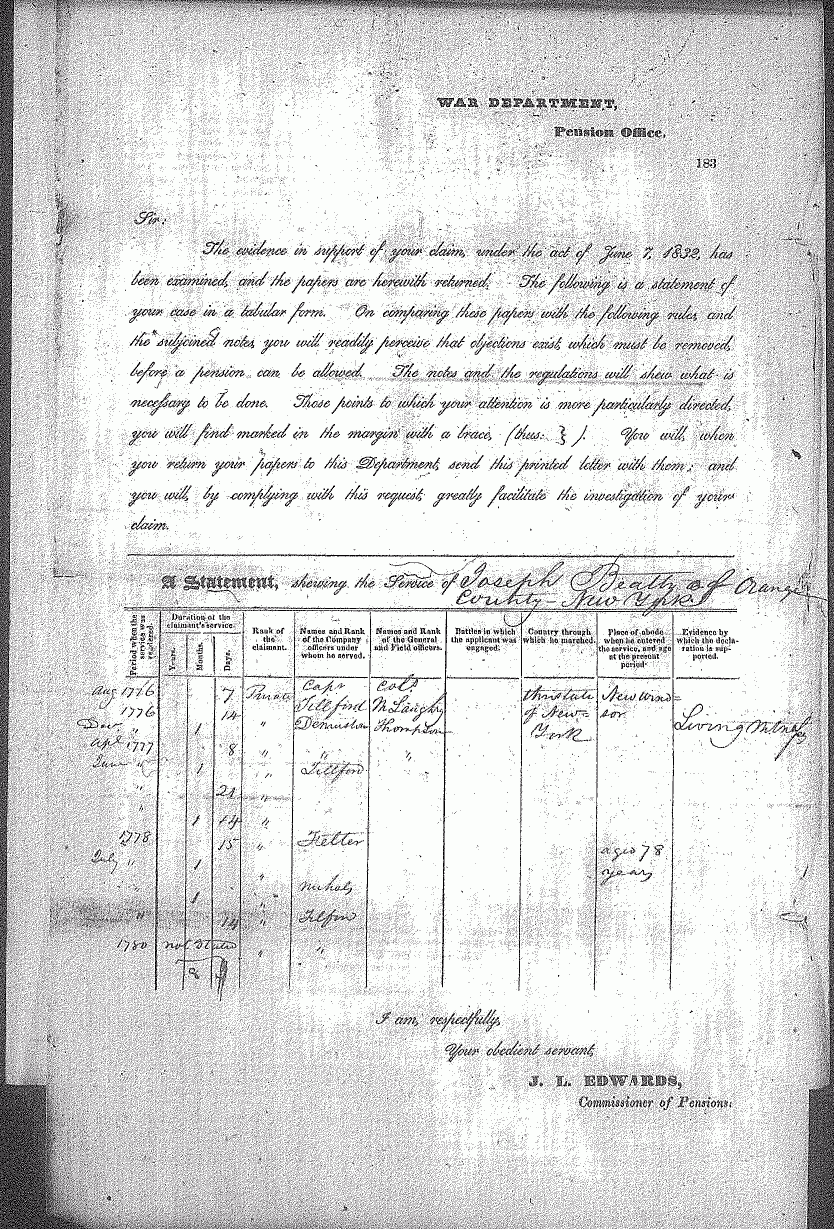 WAR DEPARTMENT,
Pension Office.
183
Sir:
The evidence in support of your claim, under the act of June 7, 1832, has
been examined, and the papers are herewith returned. The following is a statement of
your case in a tabular form. On comparing these papers with the following rules, and
the subjoined notes, you will readily perceive that objections exist, which must be removed,
before a pension can be allowed. The notes and the regulations will shew what is
necessary to be done. Those points to which your attention is more particularly directed,
you will find marked in the margin with a brace, (thus: } ). You will, when
you return your papers to this Department, send this printed letter with them; and
you will, by complying with this request, greatly facilitate the investigation of your
claim.
A Statement, shewing the Service of Joseph Beatty of Orange
County - New York
Period when the service was rendered.
Duration of the claimant's service.
Years.
Months.
Days.
Rank of the claimant.
Names and Rank of the Company officers under whom he served.
Names and Rank of the General and Field officers.
Battles in which the applicant was engaged.
Country through which he marched.
Place of abode when he entered the service, and age at the present period.
Evidence by which the declaration is supported.
Aug 1776 7 Private Capt Col. thro state New Wind=
1776 14 Tillford McLaughry of New= sor
Dec " 1 " Denniston Thompson York Living Witness
Apl 1777 8 " " "
June " 1 " Tillford
" 21 "
" 1 14 "
1778 15 " Felter aged 78
July " 1 years
" 1 " Nichols
" 14 " Tilford
1780 not stated " "
8
I am, respectfully,
Your obedient servant,
J. L. EDWARDS,
Commissioner of Pensions.